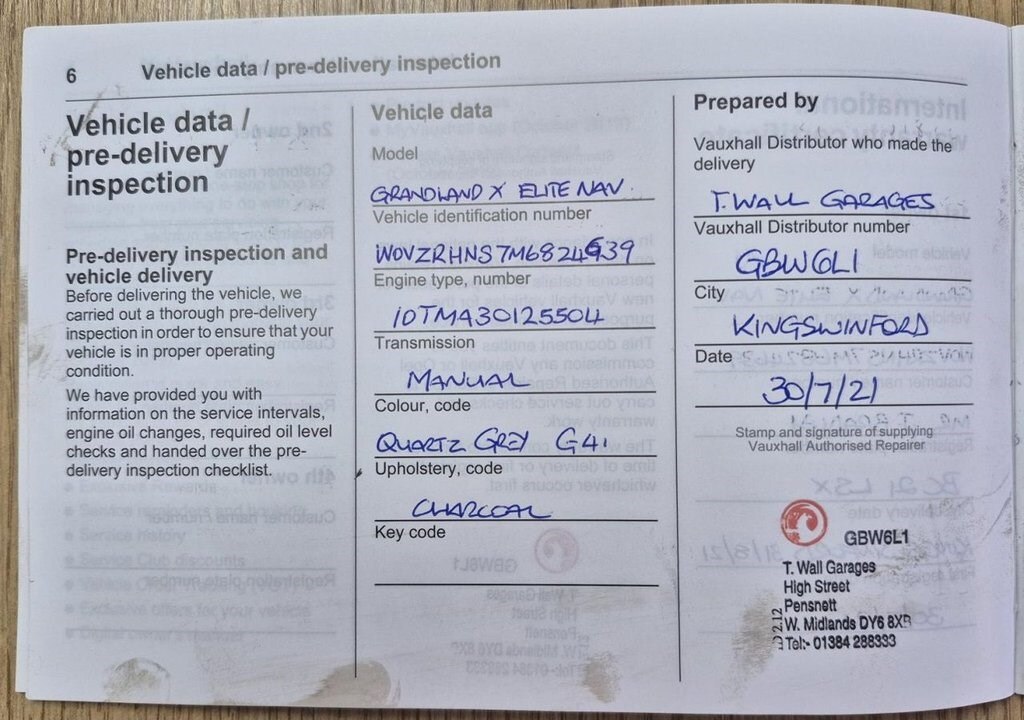 6
Vehicle data / pre-delivery inspection
Vehicle data /
pre-delivery
inspection
Pre-delivery inspection and
vehicle delivery
Before delivering the vehicle, we
carried out a thorough pre-delivery
inspection in order to ensure that your
vehicle is in proper operating
condition.
We have provided you with
information on the service intervals,
engine oil changes, required oil level
checks and handed over the pre-
delivery inspection checklist.
Vehicle data
Model
GRANDLAND X ELITE NAV.
Vehicle identification number
Engine type, number
10TMA30125504
Transmission
MANUAL
Colour, code
QUARTZ GREY G4I
Upholstery, code
CHARCOAL
Key code
Prepared by
Vauxhall Distributor who made the
delivery
T.WALL GARAGES
Vauxhall Distributor number
GBW6L1
City
KINGSWINFORD
Date
30/7/21
Stamp and signature of supplying
Vauxhall Authorised Repairer
GBW6L1
T. Wall Garages
High Street
Pensnett
W. Midlands DY6 8XR
Tel:- 01384 288333